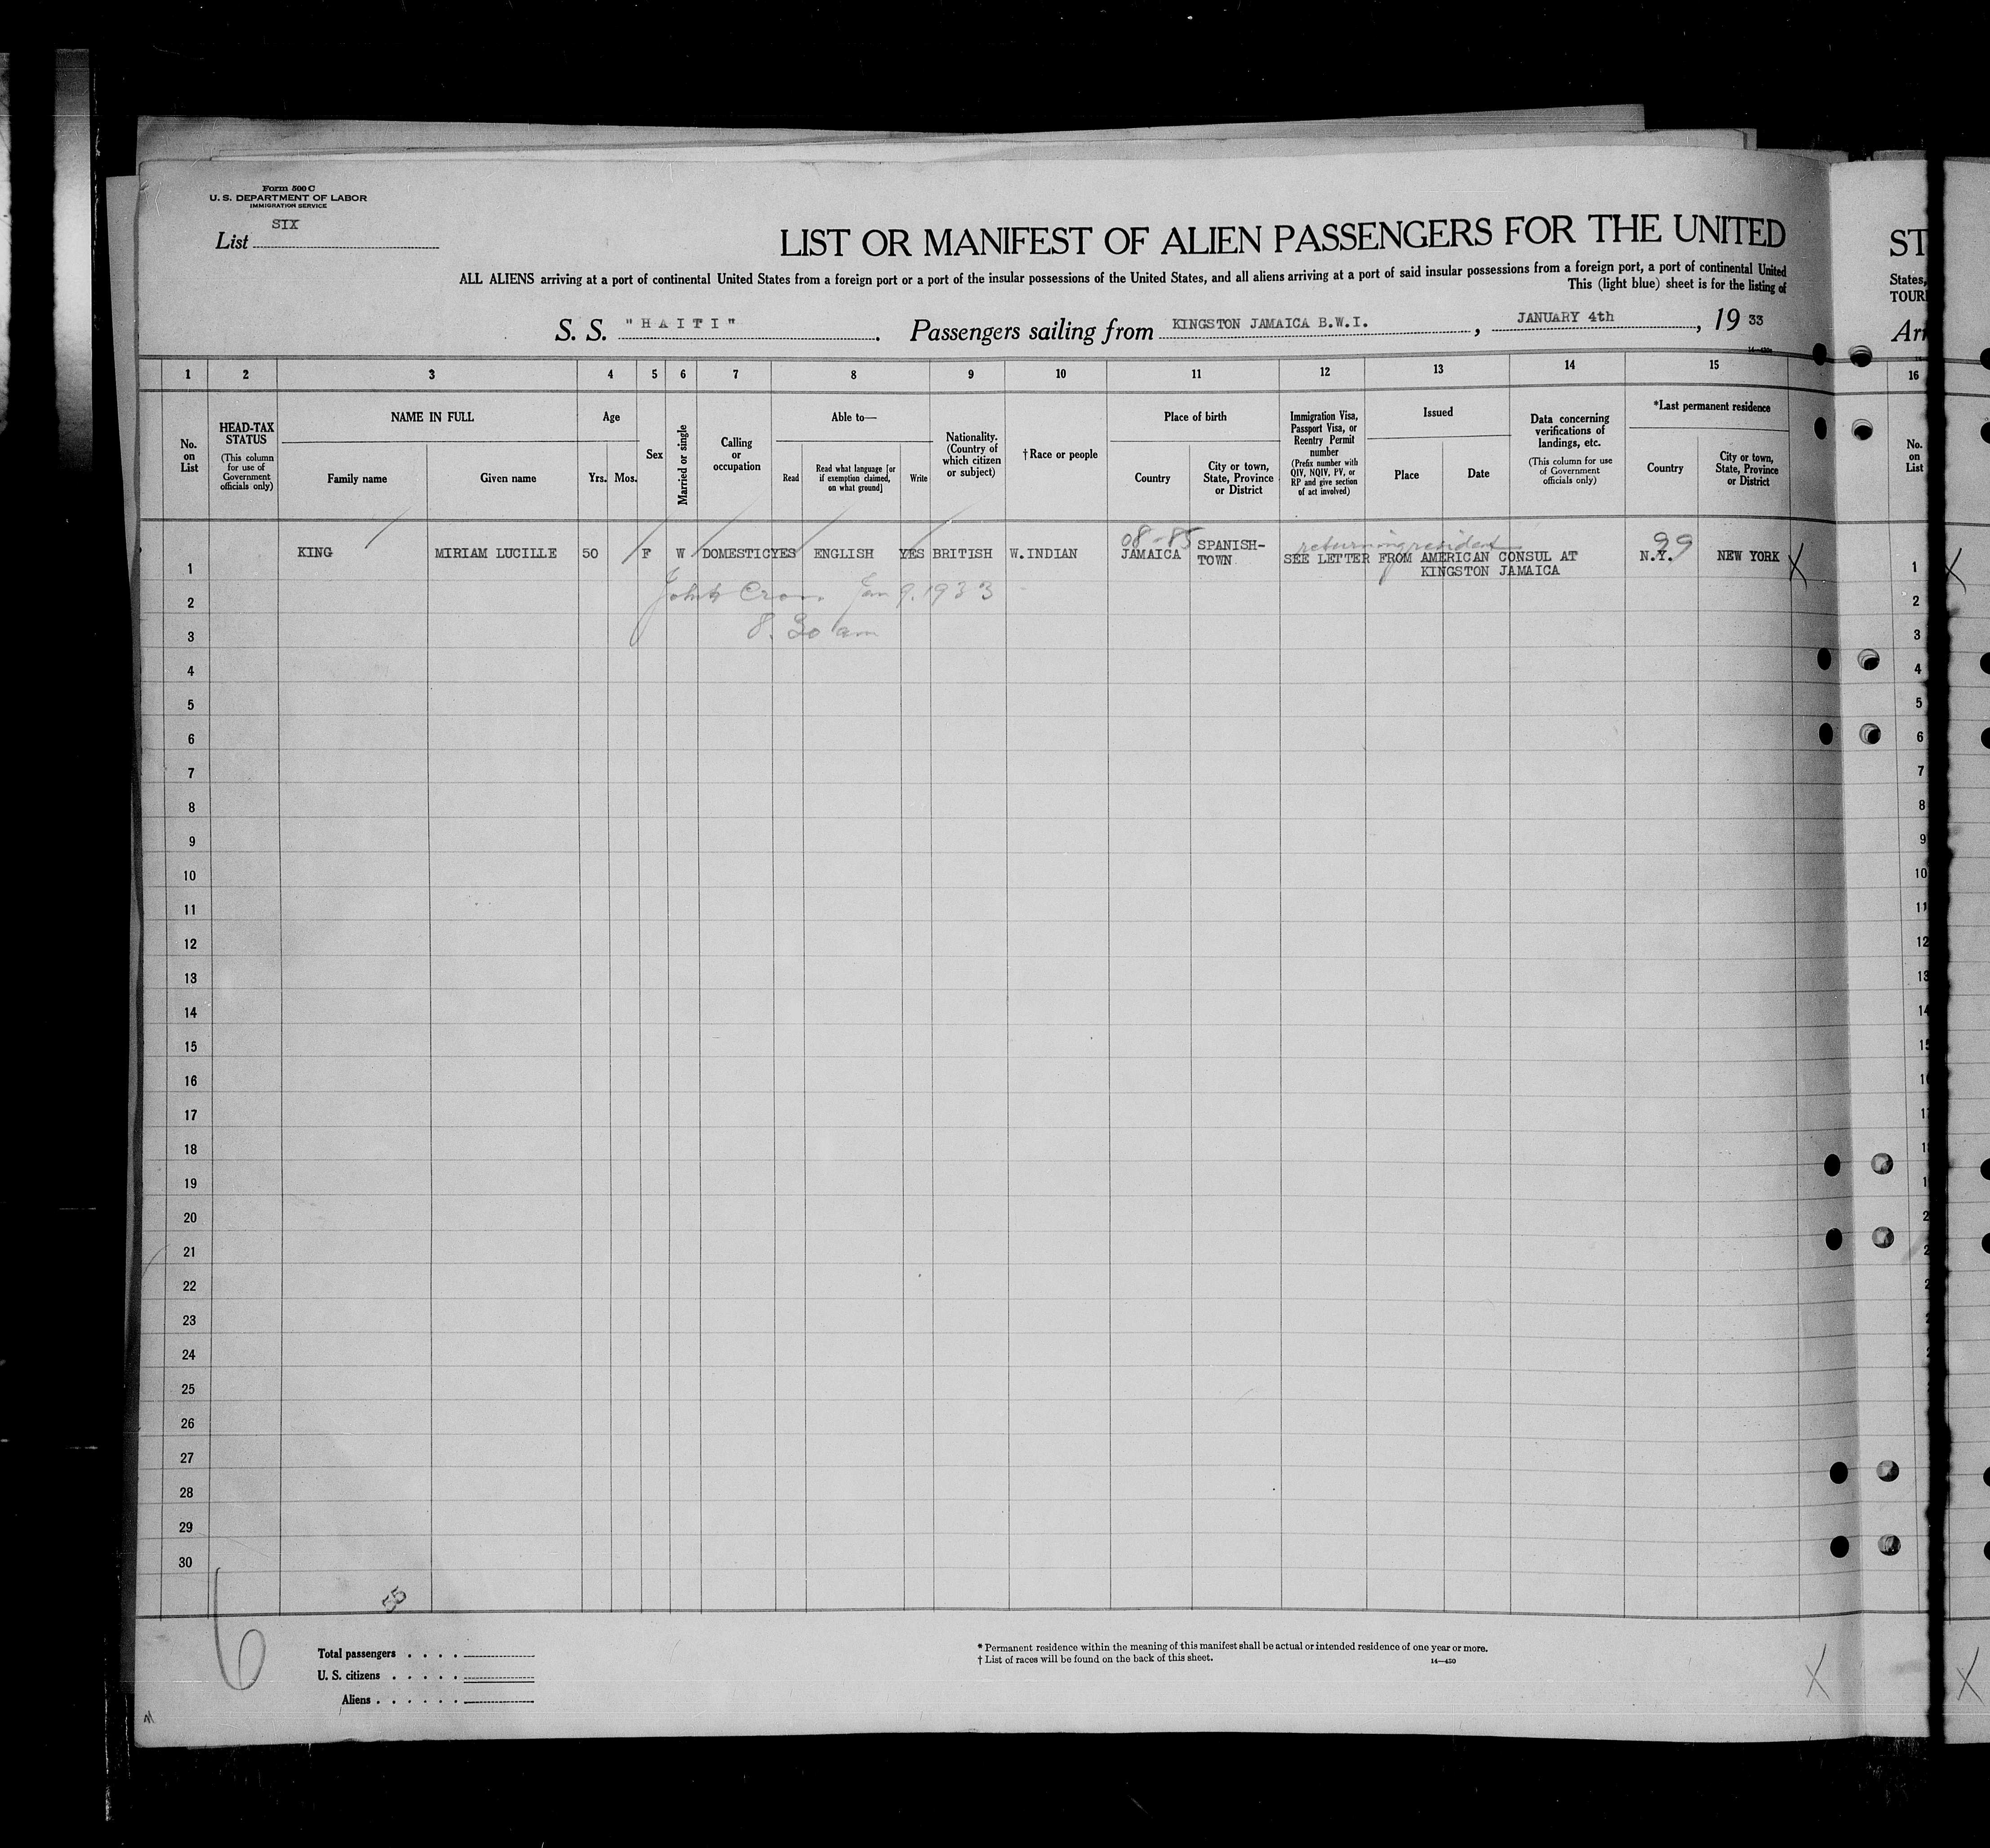 Form 500 C
U. S. DEPARTMENT OF LABOR
IMMIGRATION SERVICE
List SIX
LIST OR MANIFEST OF ALIEN PASSENGERS FOR THE UNITED
ST
ALL ALIENS arriving at a port of continental United States from a foreign port or a port of the insular possessions of the United States, and all aliens arriving at a port of said insular possessions from a foreign port, a port of continental United
States,
This (light blue) sheet is for the listing of
TOUR
S. S. "HAITI". Passengers sailing from KINGSTON JAMAICA B.W.I., JANUARY 4th, 19 33
Arr
1 2 3 4 5 6 7 8 9 10 11 12 13 14 15 16
No. on List
HEAD-TAX STATUS
(This column for use of Government officials only)
NAME IN FULL
Family name
Given name
Age
Yrs. Mos.
Sex
Married or single
Calling or occupation
Able to—
Read
Read what language [or if exemption claimed, on what ground]
Write
Nationality. (Country of which citizen or subject)
†Race or people
Place of birth
Country
City or town, State, Province or District
Immigration Visa, Passport Visa, or Reentry Permit number
(Prefix number with QIV, NQIV, PV, or RP and give section of act involved)
Issued
Place
Date
Data concerning verifications of landings, etc.
(This column for use of Government officials only)
*Last permanent residence
Country
City or town, State, Province or District
No. on List
08-85 returning resident 99
1 KING MIRIAM LUCILLE 50 F W DOMESTIC YES ENGLISH YES BRITISH W.INDIAN JAMAICA SPANISH-TOWN SEE LETTER FROM AMERICAN CONSUL AT KINGSTON JAMAICA N.Y. NEW YORK X 1 X
2 Jan 9. 1933 2
3 8.30 am 3
4 4
5 5
6 6
7 7
8 8
9 9
10 10
11 11
12 12
13 13
14 14
15
16
17
18
19
20
21
22
23
24
25
26
27
28
29
30
6
Total passengers
U. S. citizens
Aliens
* Permanent residence within the meaning of this manifest shall be actual or intended residence of one year or more.
† List of races will be found on the back of this sheet.
14—430
X X